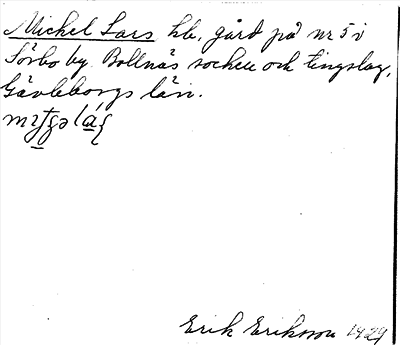 Michel Lars hb. gård på nr 5 i
Sörbo by. Bollnäs socken och tingslag,
Gävleborgs län.
Erik Eriksson 1929